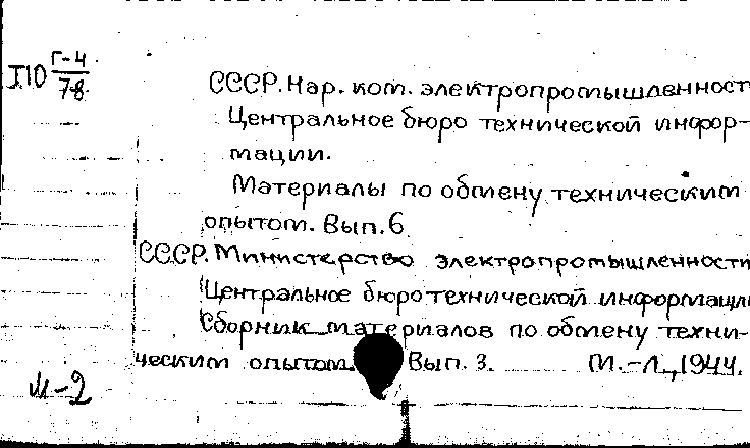 I10 Г-4/78
СССР. Нар. ком. электропромышленност
Центральное бюро технической инфор-
мации.
Материалы по обмену техническим
опытом. Вып. 6
СССР. Министерство электропромышленности
Центральное бюро технической информации
Сборник материалов по обмену техни-
ческим опытом Вып. 3. М.-Л., 1944.
М-2